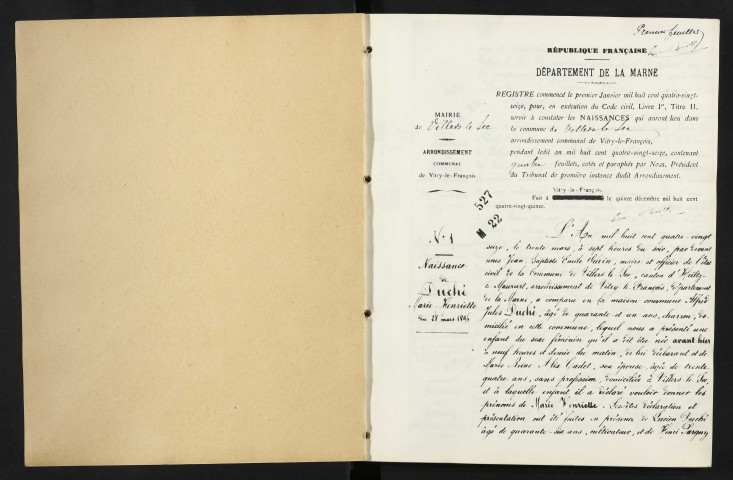 Premier feuillet
RÉPUBLIQUE FRANÇAISE
DÉPARTEMENT DE LA MARNE
REGISTRE commencé le premier Janvier mil huit cent quatre-vingt-
seize, pour, en exécution du Code civil, Livre Ier, Titre II,
servir à constater les NAISSANCES qui auront lieu dans
la commune de Villers-le-Sec
arrondissement communal de Vitry-le-François,
pendant ledit an mil huit cent quatre-vingt-seize, contenant
quatre feuillets, cotés et paraphés par Nous, Président
du Tribunal de première instance dudit Arrondissement.
Vitry-le-François,
Fait à le quinze décembre mil huit cent
quatre-vingt-quinze.
MAIRIE
de Villers le Sec
ARRONDISSEMENT
COMMUNAL
de Vitry-le-François
527
M 22
N° 1
Naissance
de
Duché
Marie-Henriette
du 28 mars 1896
L'An mil huit cent quatre-vingt
seize, le trente mars, à sept heures du soir, par devant
nous Jean-Baptiste Emile, maire et officier de l'état
civil de la Commune de Villers-le-Sec, canton d'Heiltz-
le-Maurupt, arrondissement de Vitry-le-François, département
de la Marne, a comparu en la maison commune, Alfred
Jules Duché, âgé de quarante et un ans, charron, do-
micilié en cette commune, lequel nous a présenté une
enfant du sexe féminin qu'il a dit être née avant-hier
à neuf heures et demie du matin, de lui déclarant et de
Marie Reine Alix Cadet, son épouse, âgée de trente
quatre ans, sans profession, domiciliée à Villers-le-Sec,
et à laquelle enfant il a déclaré vouloir donner les
prénoms de Marie Henriette. Lesdites déclaration et
présentation ont été faites en présence de Lucien Duché
âgé de quarante-six ans, cultivateur, et de Henri Pargny